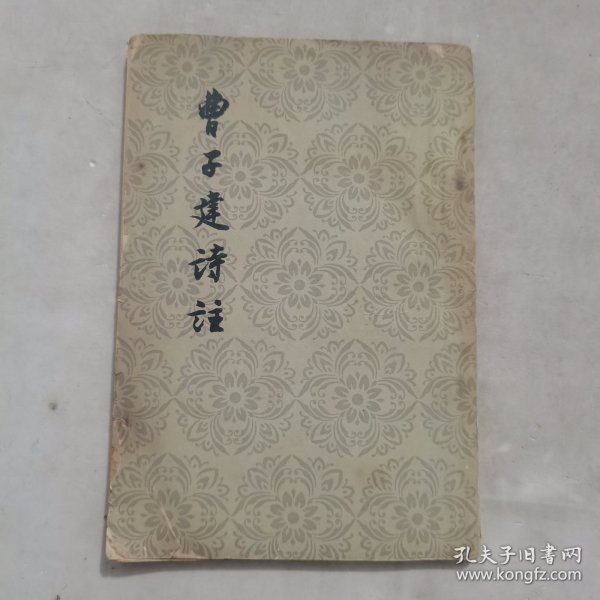 曹子建诗註
孔夫子旧書网
www.kongfz.com